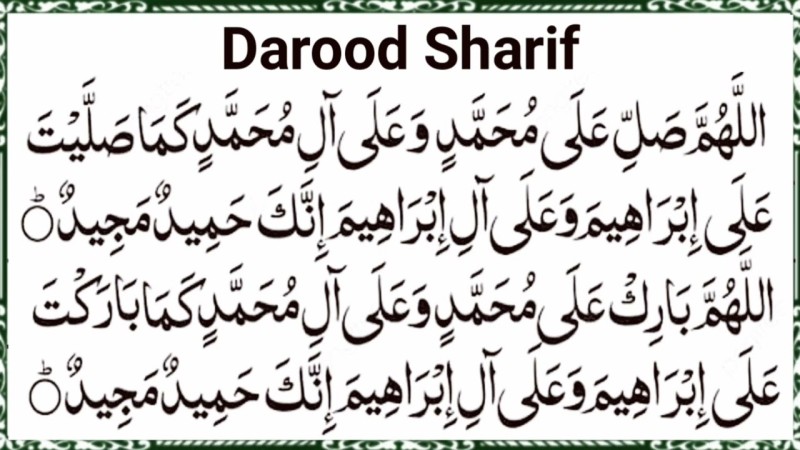 Darood Sharif
اللَّهُمَّ صَلِّ عَلَى مُحَمَّدٍ وَعَلَى آلِ مُحَمَّدٍ كَمَا صَلَّيْتَ
عَلَى إِبْرَاهِيمَ وَعَلَى آلِ إِبْرَاهِيمَ إِنَّكَ حَمِيدٌ مَجِيدٌ
اللَّهُمَّ بَارِكْ عَلَى مُحَمَّدٍ وَعَلَى آلِ مُحَمَّدٍ كَمَا بَارَكْتَ
عَلَى إِبْرَاهِيمَ وَعَلَى آلِ إِبْرَاهِيمَ إِنَّكَ حَمِيدٌ مَجِيدٌ